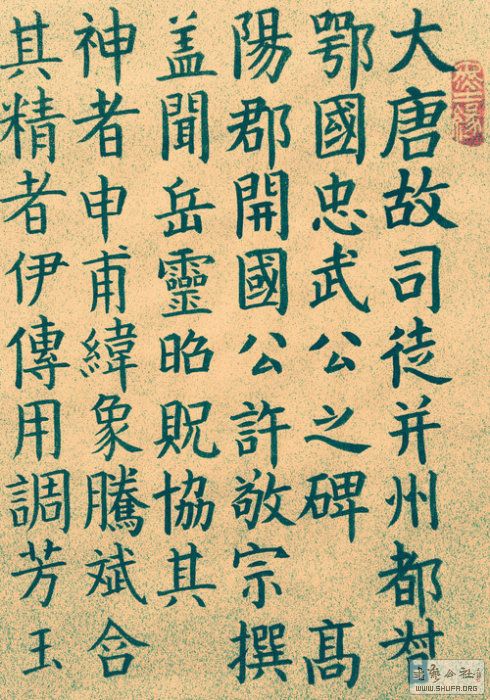 大唐故司徒并州都督
鄂國忠武公之碑 髙
陽郡開國公許敬宗撰
盖聞岳靈昭貺協其
神者申甫緯象騰斌合
其精者伊傳用調芳玉
WWW.SHUFA.ORG